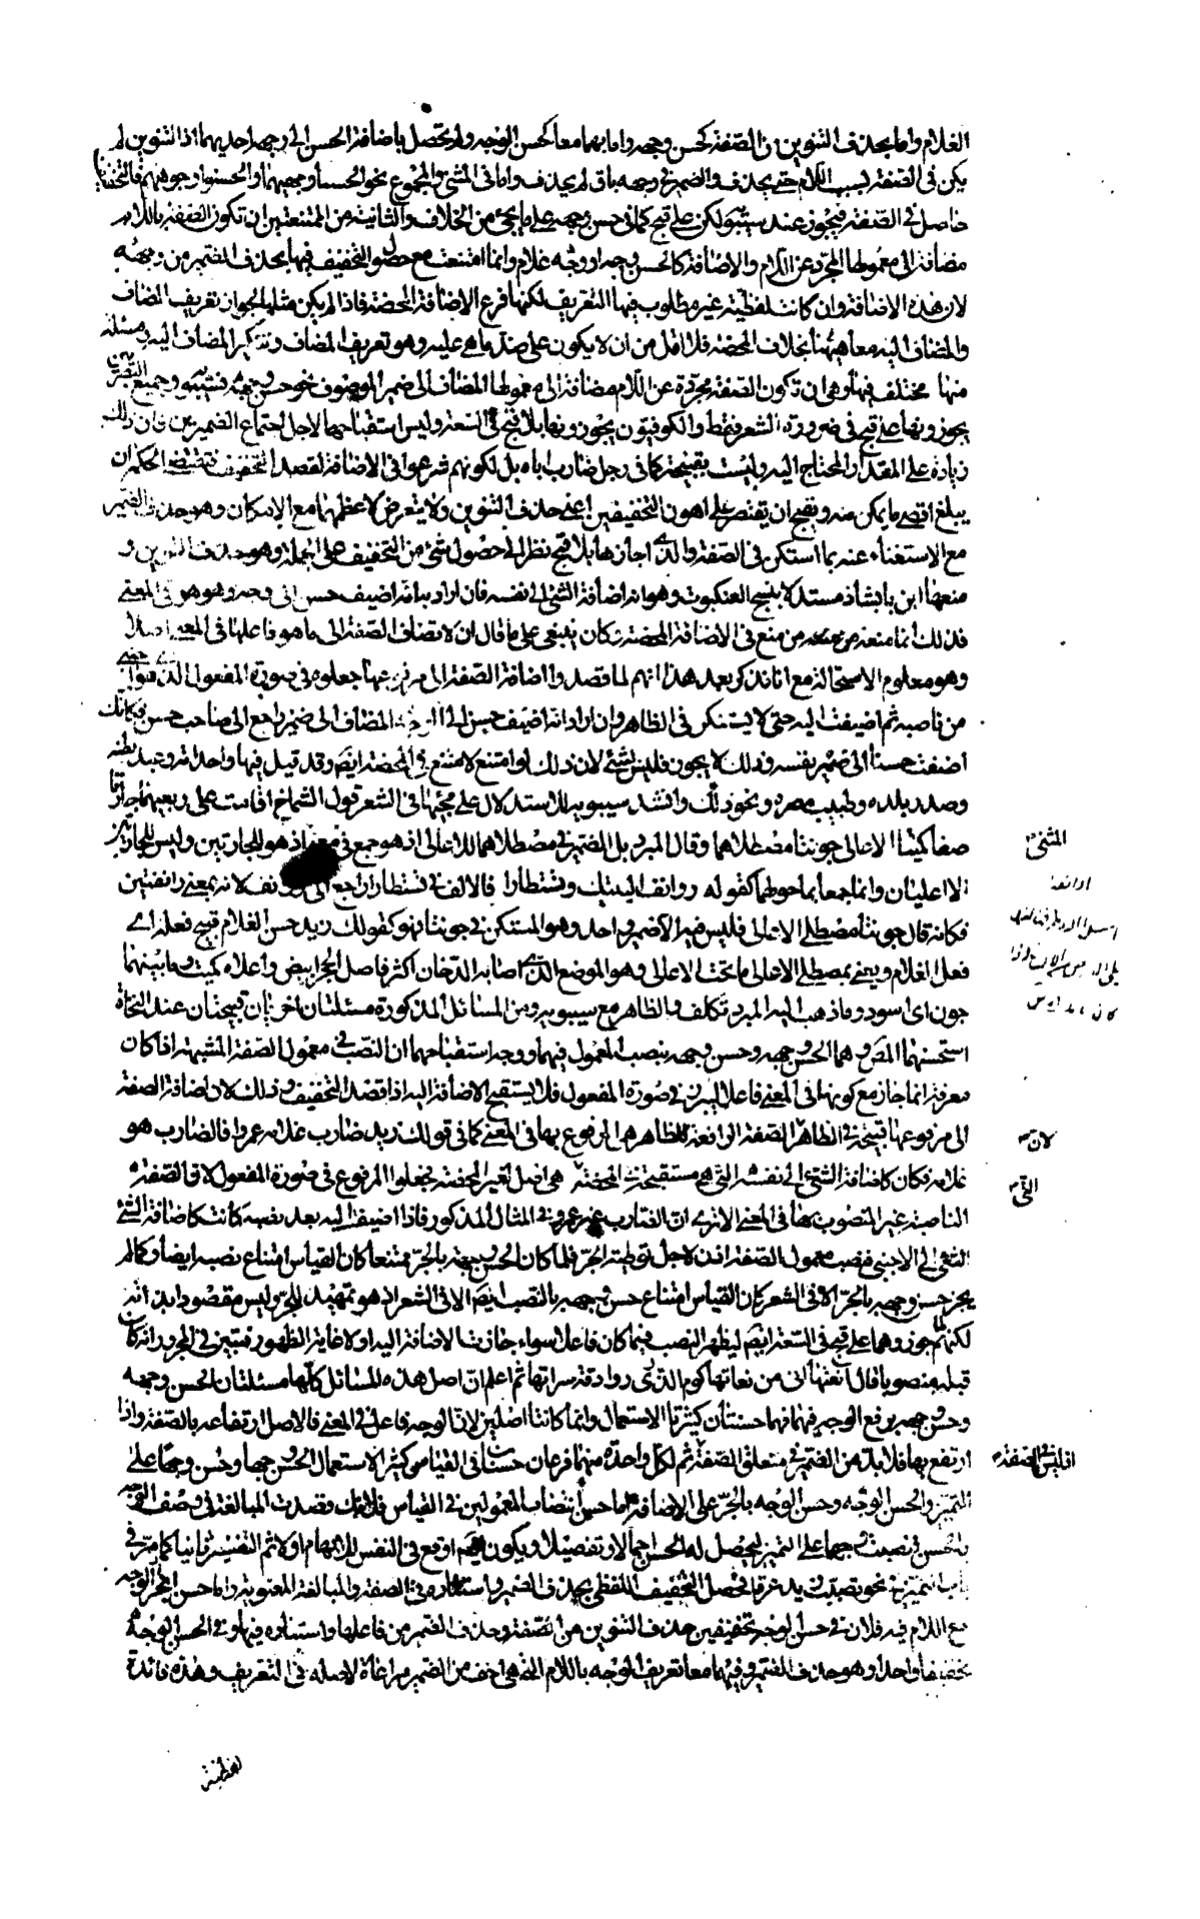 الغلام واما بحذف التنوين من الصفة كحسن وجهه واما بهما معا كحسن الوجه ولم يحصل باضافة الحسن الى وجهه احديهما اذ التنوين لم
يكن فى الصفة بسبب اللام حتى يحذف والضمير فى وجهه باق لم يحذف واما فى المثنى والمجموع نحو الحسنا وجهيهما والحسنو وجوههم فالتخفيف
حاصل فى الصفة فيجوز عند سيبويه ولكن على قبح كما فى حسن وجهه على ما يجئ من الخلاف والثانية من الممتنعتين ان تكون الصفة باللام
مضافة الى معمولها المجرد عن اللام والاضافة كالحسن وجه او وجه غلام وانما امتنعت مع حصول التخفيف فيها بحذف الضمير من وجهه
لان هذه الاضافة وان كانت لفظية غير مطلوب فيها التعريف لكنها فرع الاضافة المحضة فاذا لم يكن مثلها لجواز تعريف المضاف
والمضاف اليه معا ههنا بخلاف المحضة فلا اقل من ان لا يكون على ضد ما هى عليه وهو تعريف المضاف وتنكير المضاف اليه ومسئلة
منها مختلف فيها وهى ان تكون الصفة مجردة عن اللام مضافة الى معمولها المضاف الى ضمير الموصوف نحو حسن وجهه فسيبويه وجميع البصريين
يجوزونها على قبح فى ضرورة الشعر فقط والكوفيون يجوزونها بلا قبح فى السعة وليس استقباحها لاجل اجتماع الضميرين فان ذلك
زيادة على المقدار المحتاج اليه وليست بقبيحة كما فى رجل ضارب اباه بل لكونهم شرعوا فى الاضافة لقصد التخفيف فتقتضى الحكمة ان
يبلغ اقصى ما يمكن منه ويقبح ان يقتصر على اهون التخفيفين اعنى حذف التنوين ولا يتعرض لاعظمهما مع الامكان وهو حذف الضمير
مع الاستغناء عنه بما استكن فى الصفة والذى اجازها بلا قبح نظر الى حصول شئ من التخفيف على الجملة وهو حذف التنوين و
منعها ابن بابشاذ مستدلا بنسج العنكبوت وهو انه اضافة الشئ الى نفسه فان اراد به انه اضيف حسن الى وجه وهو هو فى المعنى
فذلك انما منعه من منع فى الاضافة المحضة فكان ينبغى على ما قال ان لا تضاف الصفة الى ما هو فاعلها فى المعنى اصلا
وهو معلوم الاستحالة مع انا نذكر بعد هذا انهم لما قصدوا اضافة الصفة الى مرفوعها جعلوه فى صورة المفعول الذى هو اجنبى
من ناصبه ثم اضيفت اليه حتى لا يستنكر فى الظاهر وان اراد انه اضيف حسن الى الوجه المضاف الى ضمير راجع الى صاحب حسن فكانك
اضفت حسنا الى ضمير نفسه وذلك لا يجوز فليس بشئ لان ذلك لو امتنع لامتنع فى المحضة ايضا وقد قيل فيها واحد امه وعبد بطنه
وصدر بلده وطبيب مصره ونحو ذلك وانشد سيبويه للاستدلال على مجيئها فى الشعر قول الشماخ اقامت على ربعيهما جارتا
صفا كميتا الاعالى جونتا مصطلاهما وقال المبرد بل الضمير فى مصطلاهما للاعالى اذ هو جمع فى معنى اذ هو للجارتين وليس للجارتين
الا اعليان وانما جمعا بما حولهما كقوله روانف اليتيك وتستطارا فالالف فى تستطارا راجع الى روانف لانه بمعنى رانفتين
فكانه قال جونتا مصطلى الاعالى فليس فيه الا ضمير واحد وهو المستكن فى جونتا فهو كقولك زيد حسن الغلام قبيح فعله اى
فعل الغلام ويعنى بمصطلى الاعالى ما تحت الاعالى وهو الموضع الذى اصابه الدخان اكثر فاصل الحجر ابيض واعلاه كميت وما بينهما
جون اى اسود وما ذهب اليه المبرد تكلف والظاهر مع سيبويه ومن المسائل المذكورة مسئلتان اخريان قبيحتان عند النحاة
استحسنهما المص وهما الحسن وجهه وحسن وجهه بنصب المعمول فيهما ووجه استقباحهما ان النصب فى معمول الصفة المشبهة اذا كان
معرفة انما جاز مع كونها فى المعنى فاعلا ليبرز فى صورة المفعول فلا يستقبح الاضافة اليه اذا قصد التخفيف وذلك لان اضافة الصفة
الى مرفوعها قبيحة فى الظاهر الصفة الرافعة للظاهر هى المرفوع بها فى المعنى كما فى قولك زيد ضارب غلامه عمروا فالضارب هو
غلامه فكان كاضافة الشئ الى نفسه التى هى مستقبحة فى المحضة هى اصل لغير المحضة فجعلوا المرفوع فى صورة المفعول لان الصفة
الناصبة غير المنصوب بها فى المعنى الا ترى ان الضارب غير عمرو فى المثال المذكور فاذا اضيفت اليه بعد نصبه كانت كاضافة الشئ
الى الاجنبى فنصب معمول الصفة اذن لاجل توطئة الجر فلما كان الحسن وجهه بالجر ممتنعا كان القياس امتناع نصبه ايضا وكما لم
يجز حسن وجهه بالجر الا فى الشعر كان القياس امتناع حسن وجهه بالنصب ايضا الا فى الشعر اذ هو تمهيد للجر وليس مقصودا بذاته
لكنهم جوزوهما على قبح فى السعة ايضا ليظهر النصب فيما كان فاعلا سواء جازت الاضافة اليه اولا غاية الظهور فتبين فى المجرور انه كان
قبله منصوبا قال انعتها انى من نعاتها كوم الذرى وادقة سراتها ثم اعلم ان اصل هذه المسائل كلها مسئلتان الحسن وجهه
وحسن وجهه برفع الوجه فيهما فهما حسنتان كثيرتا الاستعمال وانما كانتا اصلين لان الوجه فاعل فى المعنى فالاصل ارتفاعه بالصفة واذا
ارتفع بها فلا بد من الضمير فى متعلق الصفة ثم لكل واحدة منهما فرعان حسنان فى القياس كثيرا الاستعمال الحسن وجها وحسن وجها على
التمييز والحسن الوجه وحسن الوجه بالجر على الاضافة اما حسن انتصاب المعمولين فى القياس فلانك قصدت المبالغة فى وصف الوجه
بالحسن فنصبت وجها على التمييز ليحصل له الحسن اجمالا وتفصيلا ويكون ايضا اوقع فى النفس للابهام اولا ثم التفسير ثانيا كما مر فى
باب التمييز فى نحو تصبب زيد عرقا فحصل التخفيف اللفظى بحذف الضمير واستتاره فى الصفة والمبالغة المعنوية واما حسن انجرار الوجه
مع اللام فيه فلان فى حسن الوجه تخفيفين حذف التنوين من الصفة وحذف الضمير من فاعلها واستتاره فيها وفى الحسن الوجه
تخفيفا واحدا وهو حذف الضمير وفيهما معا تعريف الوجه باللام التى هى اخف من الضمير مراعاة لاصله فى التعريف وهذه فائدة
المثنى
لان
التى
اذ ليس فى الصفة
لفظية